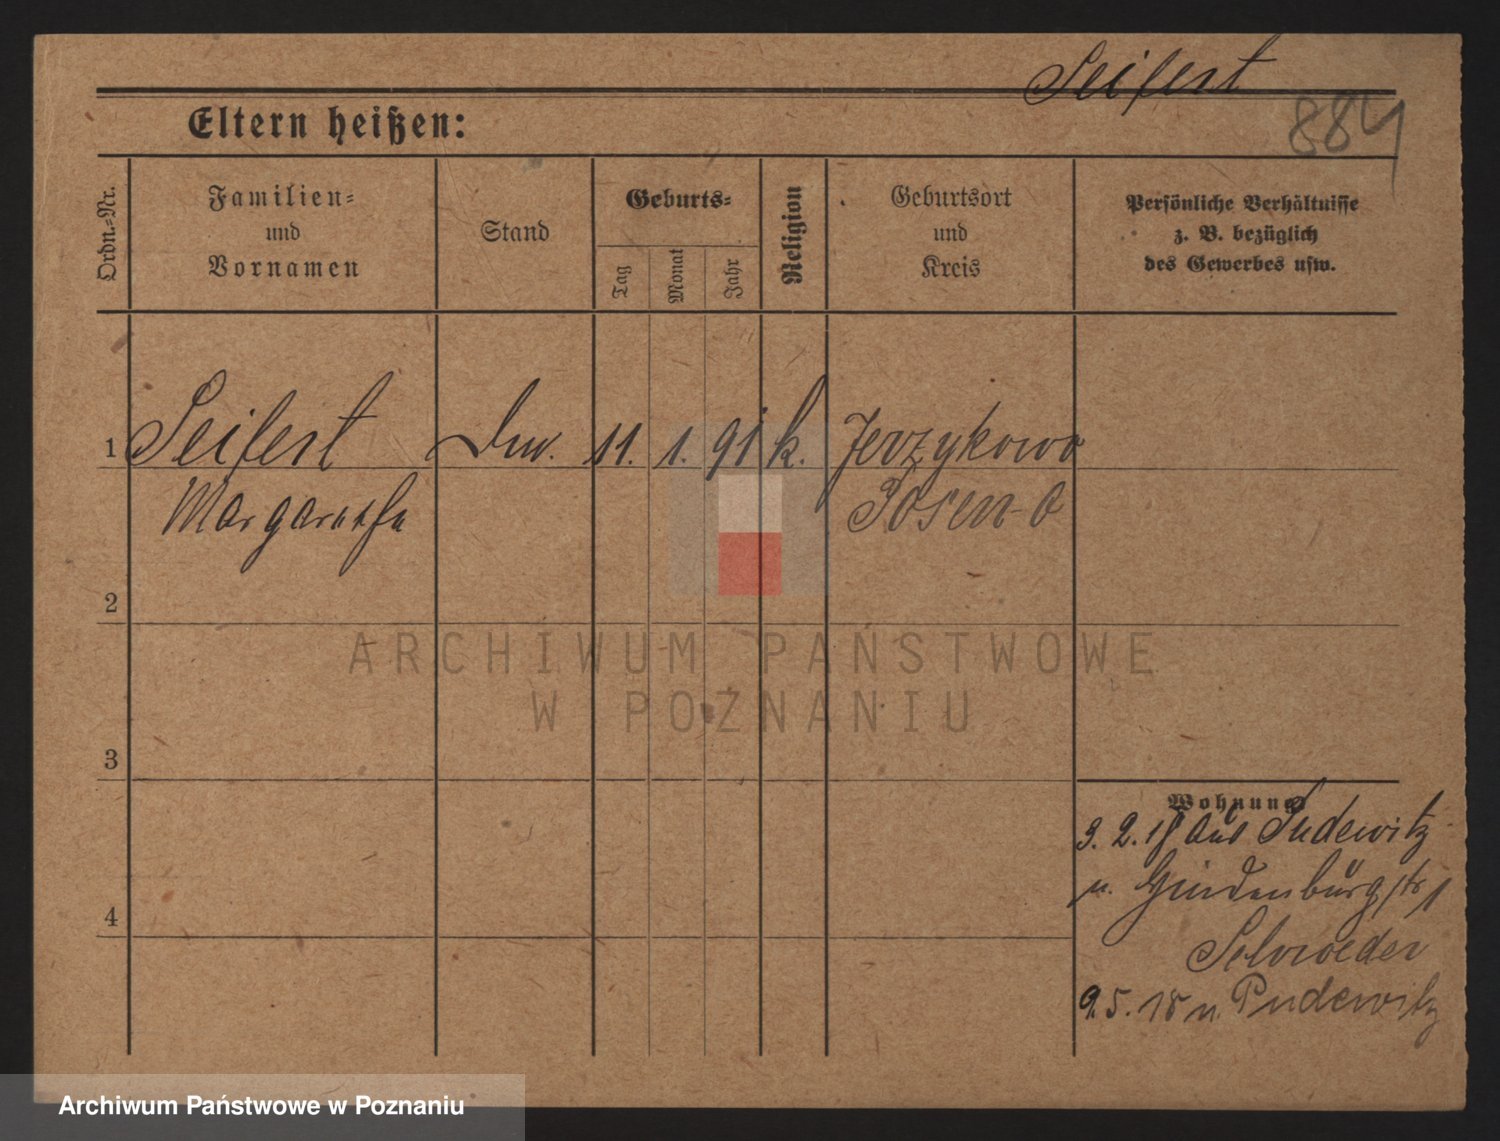 Seifert
884
Eltern heißen:
Ordn.-Nr.
Familien-
und
Vornamen
Stand
Geburts-
Tag
Monat
Jahr
Religion
Geburtsort
und
Kreis
Persönliche Verhältnisse
z. B. bezüglich
des Gewerbes usw.
1 Seifert 11. 1. 91 k. Jerzykowo
Margarethe Posen-O
2
3
4
Wohnung
3. 2. 18 aus Pudewitz
n. Hindenburgstr 1
Schroeder
9. 5. 18 n. Pudewitz
ARCHIWUM PAŃSTWOWE
W POZNANIU
Archiwum Państwowe w Poznaniu